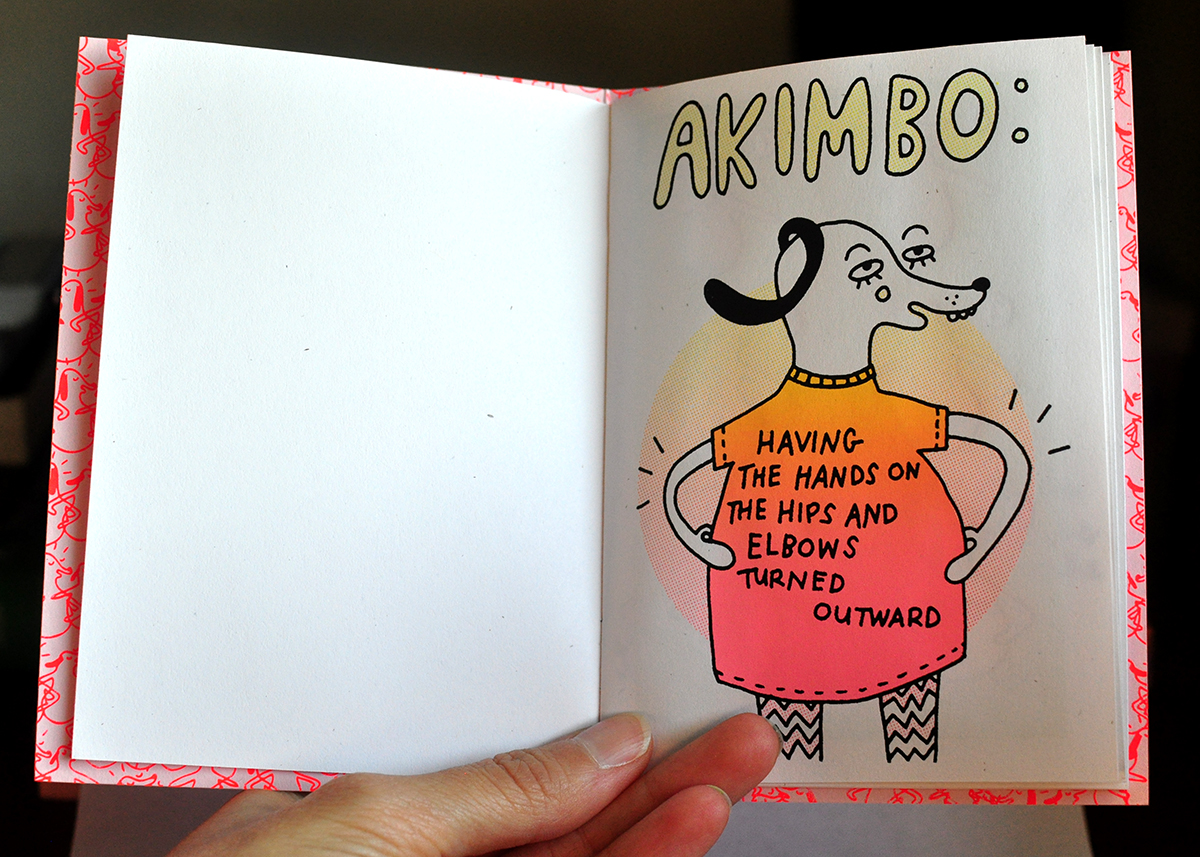 AKIMBO:
HAVING
THE HANDS ON
THE HIPS AND
ELBOWS
TURNED
OUTWARD